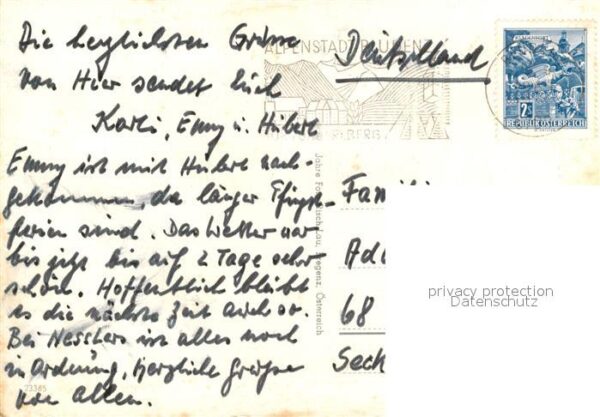 Die herzlichsten Grüsse
von Hier sendet Euch
Karli, Emmy u. Hubert
Emmy ist mit Hubert nach-
gekommen, da länger Pfingst-
ferien sind. Das Wetter war
bis jetzt bis auf 2 Tage sehr
schön. Hoffentlich bleibt
es die nächste Zeit auch so.
Bei Nesslers ist alles noch
in Ordnung, Herzliche Grüße
von allen.
23385
ALPENSTADT BLUDENZ
Deutschland
2S
REPUBLIK ÖSTERREICH
Österreich
Familie
68
Sech
privacy protection
Datenschutz